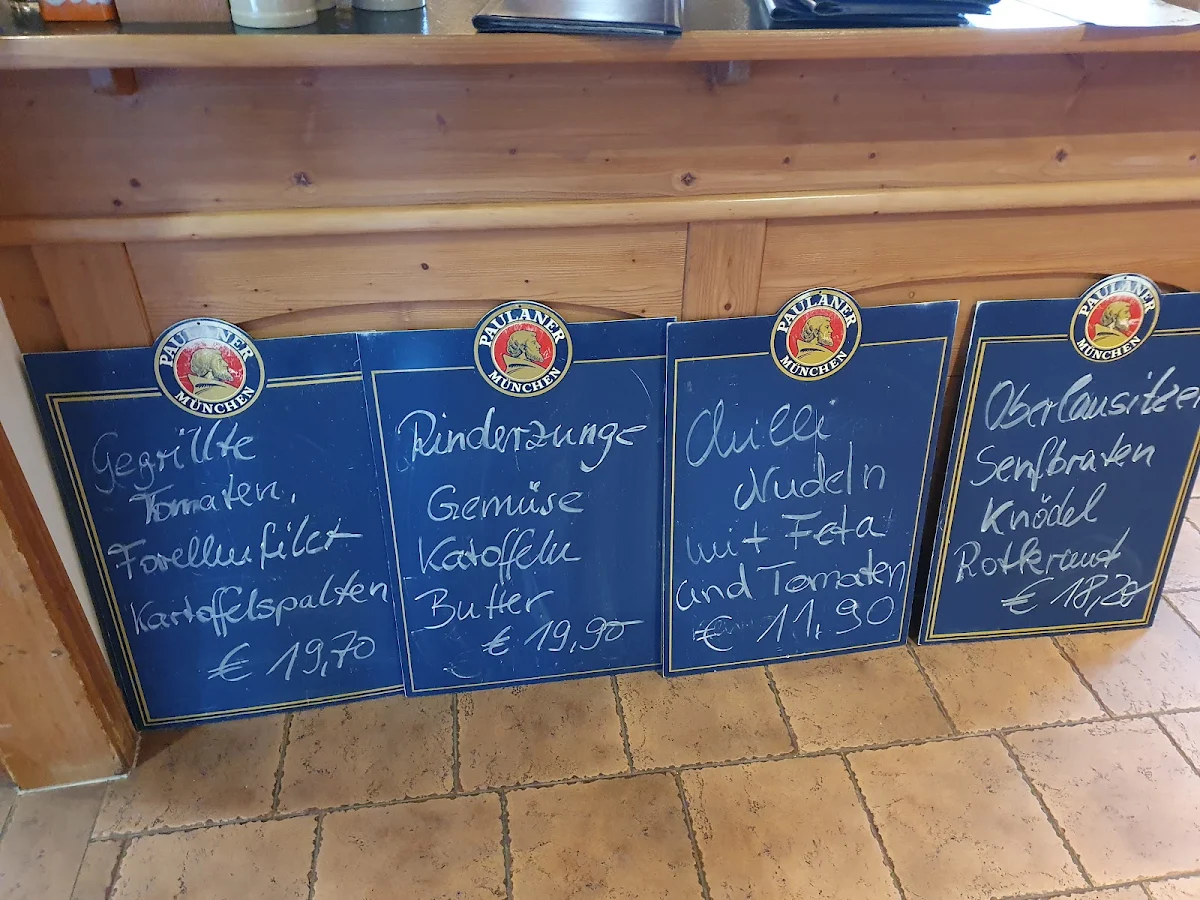 PAULANER
MÜNCHEN
Gegrillte
Tomaten,
Forellenfilet
Kartoffelspalten
€ 19,70
PAULANER
MÜNCHEN
Rinderzunge
Gemüse
Katoffeln
Butter
€ 19,90
PAULANER
MÜNCHEN
Chilli
Nudeln
mit Feta
und Tomaten
€ 11,90
PAULANER
MÜNCHEN
Oberlausitzer
Senfbraten
Knödel
Rotkraut
€ 18,20